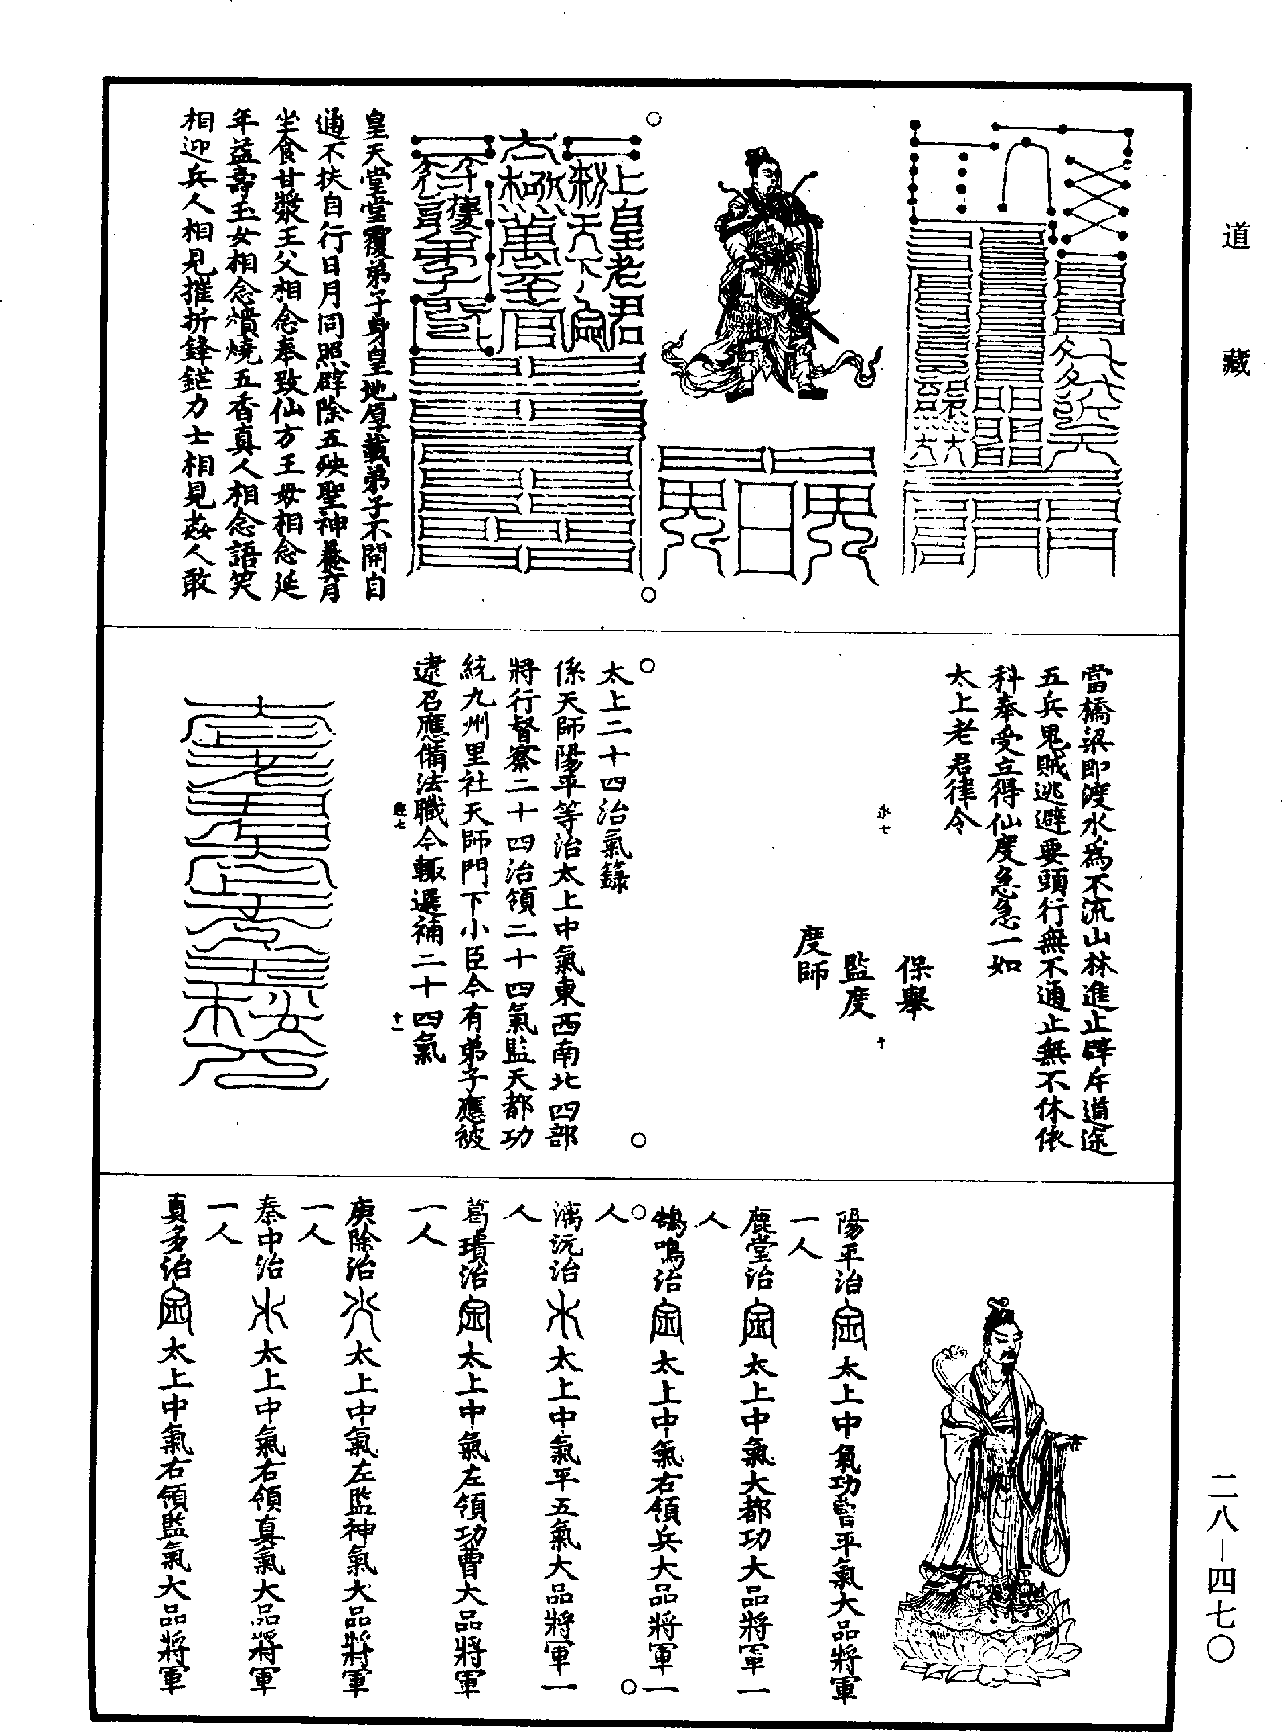 道藏
皇天堂堂覆弟子身皇地厚載弟子不開自
通不扶自行日月同照辟除五殃聖神養育
坐食甘漿王父相念奉致仙方王母相念延
年益壽玉女相念燌燒五香真人相念語笑
相迎兵人相見摧折鋒鋩力士相見姦人敢
當橋梁即渡水為不流山林進止辟斥道途
五兵鬼賊逃避要頭行無不通止無不休依
科奉受立得仙度急急一如
太上老君律令
保舉
監度
度師
太上二十四治氣籙
係天師陽平等治太上中氣東西南北四部
將行督察二十四治領二十四氣監天都功
統九州里社天師門下小臣今有弟子應被
逮召應備法職今輒遷補二十四氣
陽平治
太上中氣功曹平氣大品將軍
一人
鹿堂治
太上中氣大都功大品將軍一
人
鶴鳴治
太上中氣右領兵大品將軍一
人
漓沅治
太上中氣平五氣大品將軍一
人
葛璝治
太上中氣左領功曹大品將軍
一人
庚除治
太上中氣左監神氣大品將軍
一人
秦中治
太上中氣右領真氣大品將軍
一人
真多治
太上中氣右領監氣大品將軍
二八—四七〇